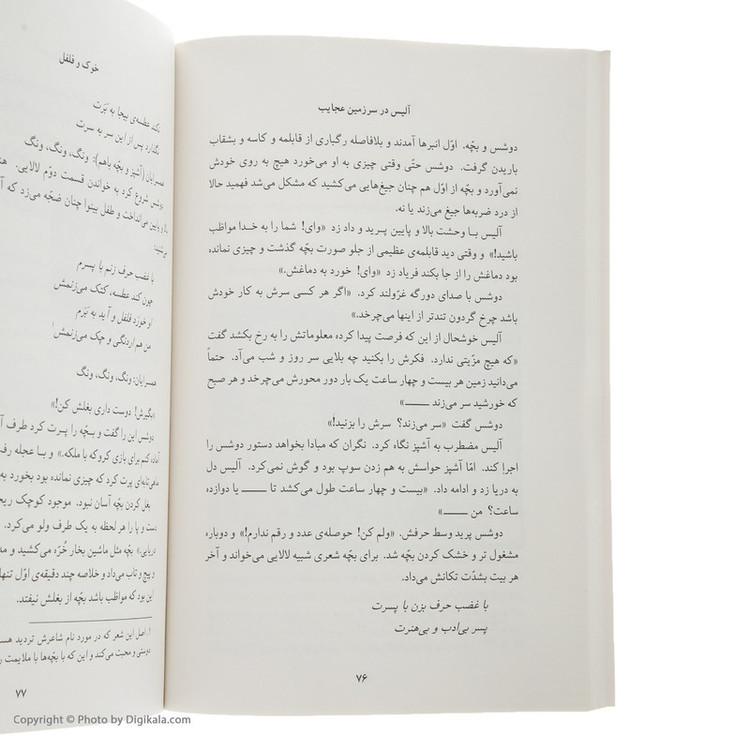 آلیس در سرزمین عجایب
دوشس و بچّه. اوّل انبرها آمدند و بلافاصله رگباری از قابلمه و کاسه و بشقاب
باریدن گرفت. دوشس حتّی وقتی چیزی به او می‌خورد هیچ به روی خودش
نمی‌آورد و بچّه از اوّل هم چنان جیغ‌هایی می‌کشید که مشکل می‌شد فهمید حالا
از درد ضربه‌ها جیغ می‌زند یا نه.
آلیس بـا وحشت بالا و پایین پـریـد و داد زد «وای! شما را به خـدا مواظب
باشید!» و وقتی دید قابلمه‌ی عظیمی از جلو صورت بچّه گذشت و چیزی نمانده
بود دماغش را از جا بکند فریاد زد «وای! خورد به دماغش.»
دوشس با صدای دورگه غرّولند کرد. «اگر هر کسی سرش به کار خودش
باشد چرخ گردون تندتر از اینها می‌چرخد.»
آلیس خوشحال از این که فرصت پیدا کرده معلوماتش را به رخ بکشد گفت
«که هیچ مزیّتی ندارد. فکرش را بکنید چه بلایی سر روز و شب می‌آد. حتماً
می‌دانید زمین هر بیست و چهار ساعت یک بار دور محورش می‌چرخد و هر صبح
که خورشید سر می‌زند ـــــ»
دوشس گفت «سر می‌زند؟ سرش را بزنید!»
آلیس مضطرب به آشپز نگاه کرد. نگران که مبادا بخواهد دستور دوشس را
اجرا کند. امّا آشپز حواسش به هم زدن سوپ بود و گوش نمی‌کرد. آلیس دل
به دریا زد و ادامه داد. «بیست و چهار ساعت طول می‌کشد تا ـــــ یا دوازده
ساعت؟ من ـــــ»
دوشس پرید وسط حرفش. «ولم کن! حوصله‌ی عدد و رقم ندارم!» و دوباره
مشغول تر و خشک کردن بچّه شد. برای بچّه شعری شبیه لالایی می‌خواند و آخر
هر بیت بشدّت تکانش می‌داد.
با غضب حرف بزن با پسرت
پسر بی‌ادب و بی‌هنرت
۷۶
خوک و فلفل
نکند عطسه‌ی بیجا به بَرَت
نگذارد پس از این سر به سرت
همسرایان (آشپز و بچّه باهم): ونگ، ونگ، ونگ
شروع کرد به خواندن قسمت دوّم لالایی.
پایین می‌انداخت و طفل بینوا چنان ضجّه می‌زد که
با غضب حرف زنم با پسرم
چون کند عطسه، کتک می‌زنمش
او خورَد فلفل و آید به بَرَم
من هم اردنگی و چک می‌زنمش۱
همسرایان: ونگ، ونگ، ونگ
«بگیرش! دوست داری بغلش کن!»
دوشس این را گفت و بچّه را پـرت کرد طرف
آماده کنم برای بازی کروکه با ملکه.» و با عجله
ماهی‌تابه‌ای پرت کرد که چیزی نمانده بود بخورد به
بغل کردن بچّه آسان نبود. موجود کوچک
دست و پا را هر لحظه به یک طرف ولو می‌کرد.
دریایی.» بچّه مثل ماشین بخار خُرّه می‌کشید و
و پیچ و تاب می‌داد و خلاصه چند دقیقه‌ی اوّل
این بود که مواظب باشد بچّه از بغلش نیفتد.
۱. اصل این شعر که در مورد نام شاعرش تردید
دوستی و محبت می‌کند و این که با بچّه‌ها با ملایمت
۷۷
Copyright © Photo by Digikala.com